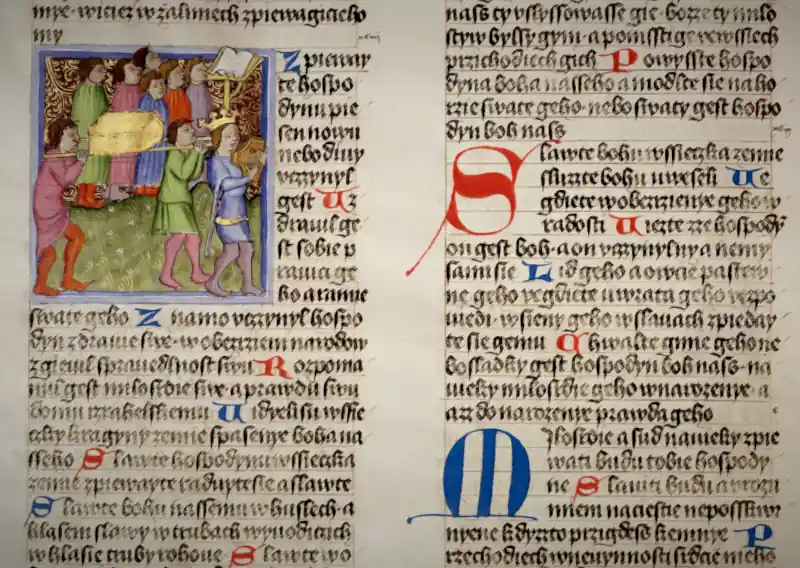 mye · wiciez w zalmiech zpiewagicieho
my
Zpieway
te hospo
dynu pie
sen nowu
nebo diwy
vczynyl
gest Uz
drawil ge
st sobie p
rawici ge
ho a ramie
swate geho Znamo vczynyl hospo
dyn zdrawie swe · w obezrzeni narodow
zgiewil sprawedlnost swu Rozpoma
nul gest milosrdie swe · a prawdu swu
domu izrahelskemu Uidyelisu wssie
czky kragyny zemie spasenye boha na
sseho Slawte hospodynu wssiczka
zemie zpiewayte raduyte sie a slawte
Slawte bohu nassemu w huslech · a
hlasem slawy w trubach wywodicich
w hlasie truby rohowe Slawte wo
nass ty vslyssowasse gie · boze ty milo
styw byl gym · a pomsti ge we wssiech
przichodiech gich Powysste hospo
dyna boha nasseho a modlte sie na ho
rzie swate geho · nebo swaty gest hospo
dyn boh nass
Slawte bohu wssiczka zemie
sluzte bohu u weselí Ue
gdiete w obezrzienye geho w
radosti Uiezte ze hospody
on gest boh · a on vczynyl ny a ne my
sami sie Lid geho a owcie pastwy
ne geho vegdiete u wrata geho ve zpo
wiedi · w sieny geho w slawach zpieway
te sie gemu Chwalte gmie geho ne
bo sladky gest hospodyn boh nass · na
wieky milosrdie geho w narozenye · a
az do narozenye prawda geho
Milosrdie a sud na wieky zpie
wati budu tobie hospody
ne Slawiti budu a rozu
miem na ciestie neposskwr
nyene kdyz to przigdess ke mnye P
rzechodiech w newynnosti srdcie meho